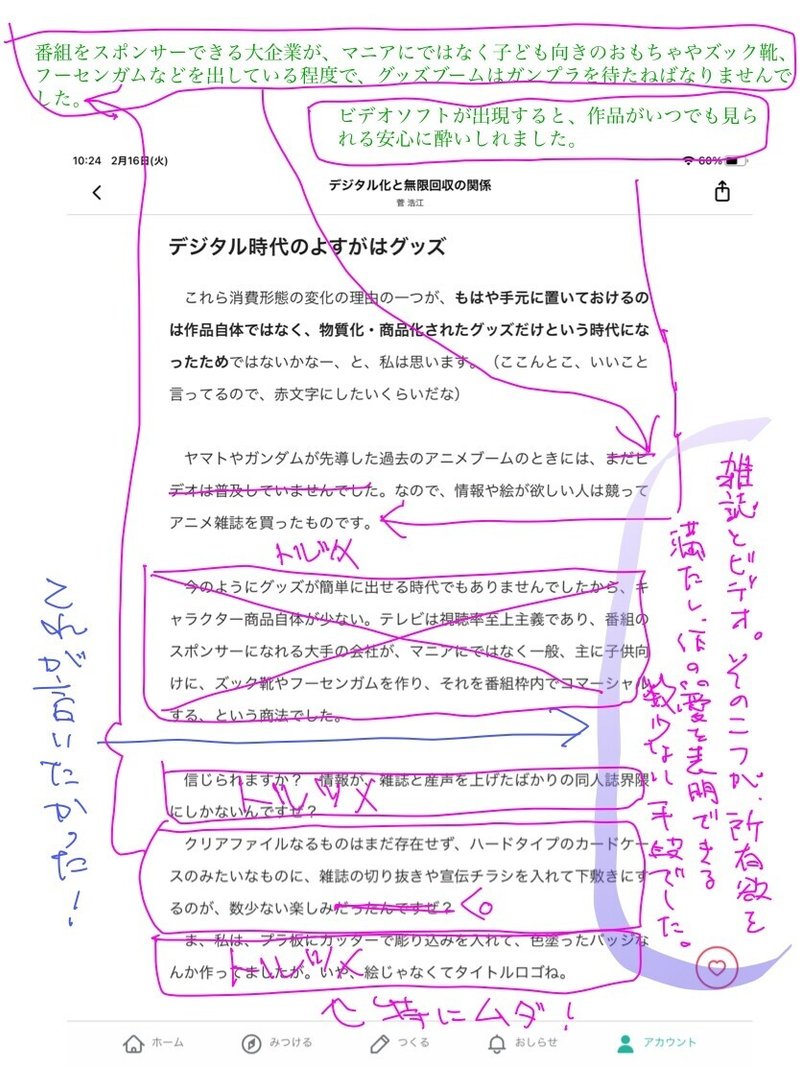 番組をスポンサーできる大企業が、マニアにではなく子ども向きのおもちゃやズック靴、
フーセンガムなどを出している程度で、グッズブームはガンプラを待たねばなりませんで
した。
ビデオソフトが出現すると、作品がいつでも見ら
れる安心に酔いしれました。
10:24 2月16日(火)
60%
デジタル化と無限回収の関係
菅 浩江
デジタル時代のよすがはグッズ
これら消費形態の変化の理由の一つが、もはや手元に置いておけるの
は作品自体ではなく、物質化・商品化されたグッズだけという時代にな
ったためではないかなー、と、私は思います。（ここんとこ、いいこと
言ってるので、赤文字にしたいくらいだな）
ヤマトやガンダムが先導した過去のアニメブームのときには、まだビ
デオは普及していませんでした。なので、情報や絵が欲しい人は競って
アニメ雑誌を買ったものです。
トルツメ
今のようにグッズが簡単に出せる時代でもありませんでしたから、キ
ャラクター商品自体が少ない。テレビは視聴率至上主義であり、番組の
スポンサーになれる大手の会社が、マニアにではなく一般、主に子供向
けに、ズック靴やフーセンガムを作り、それを番組枠内でコマーシャル
する、という商法でした。
信じられますか？ 情報が、雑誌と産声を上げたばかりの同人誌界隈
にしかないんですぜ？
トルツメ
クリアファイルなるものはまだ存在せず、ハードタイプのカードケー
スのみたいなものに、雑誌の切り抜きや宣伝チラシを入れて下敷きにす
るのが、数少ない楽しみだったんですぜ？
く。
ま、私は、プラ板にカッターで彫り込みを入れて、色塗ったバッジな
んか作ってましたが。いや、絵じゃなくてタイトルロゴね。
トルツメ
特にムダ！
これが言いたかった！
雑誌とビデオ。その二つが、所有欲を
満たし、作の愛を表明できる
数少ない手段でした。
ホーム
みつける
つくる
おしらせ
アカウント